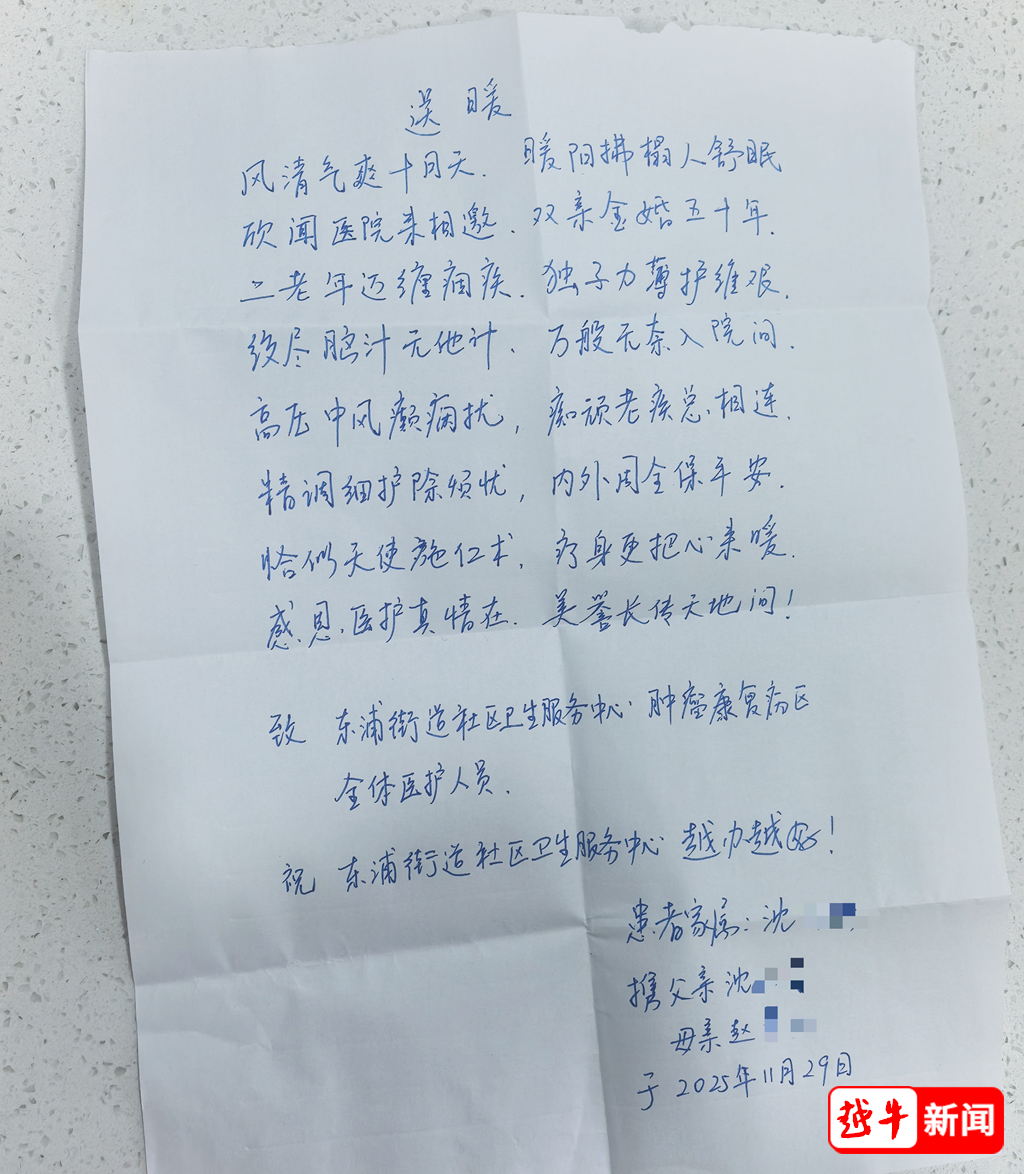 送暖
风清气爽十月天. 暖阳拂榻人舒眠
欣闻医院来相邀. 双亲金婚五十年.
二老年迈缠痼疾. 独子力薄护维艰.
绞尽脑汁无他计. 万般无奈入院间.
高压中风癫痫扰, 痴顽老疾总相连.
精调细护除烦忧, 内外周全保平安.
恰似天使施仁术. 疗身更把心来暖.
感恩医护真情在. 美誉长传天地间!
致 东浦街道社区卫生服务中心 肿瘤康复病区
全体医护人员.
祝 东浦街道社区卫生服务中心 越办越好!
患者家属: 沈
携父亲沈
母亲赵
于 2025年11月29日
越牛新闻